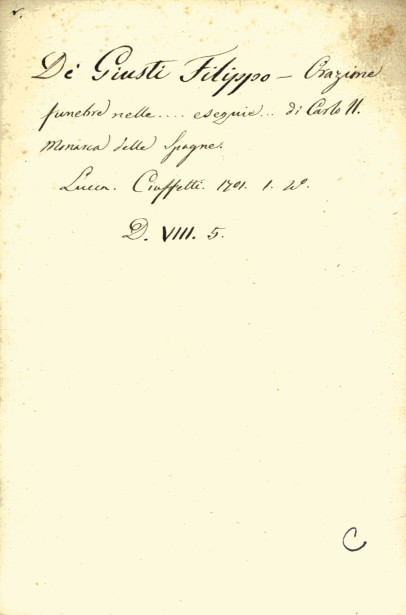 v.
De' Giusti Filippo – Orazione
funebre nelle .... esequie... di Carlo II.
Monarca delle Spagne.
Lucca. Ciuffetti. 1701. 1. 4º.
D. VIII. 5.
C